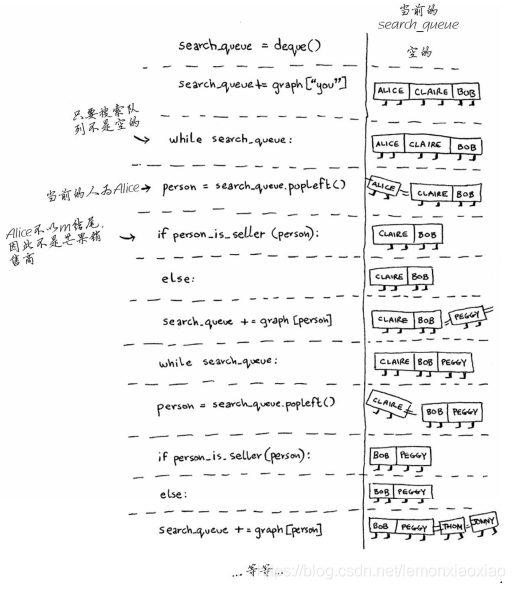 当前的
search_queue
search_queue = deque()
空的
search_queue += graph["you"]
ALICE CLAIRE BOB
只要搜索队
列不是空的
while search_queue:
ALICE CLAIRE BOB
当前的人为Alice
person = search_queue.popleft()
ALICE CLAIRE BOB
Alice不以m结尾,
因此不是芒果销
售商
if person_is_seller (person):
CLAIRE BOB
else:
CLAIRE BOB
search_queue += graph [person]
CLAIRE BOB PEGGY
while search_queue:
CLAIRE BOB PEGGY
person = search_queue.popleft()
CLAIRE BOB PEGGY
if person_is_seller (person):
BOB PEGGY
else:
BOB PEGGY
search_queue += graph [person]
BOB PEGGY THOM JONNY
... 等等...
https://blog.csdn.net/lemonxiaoxiao